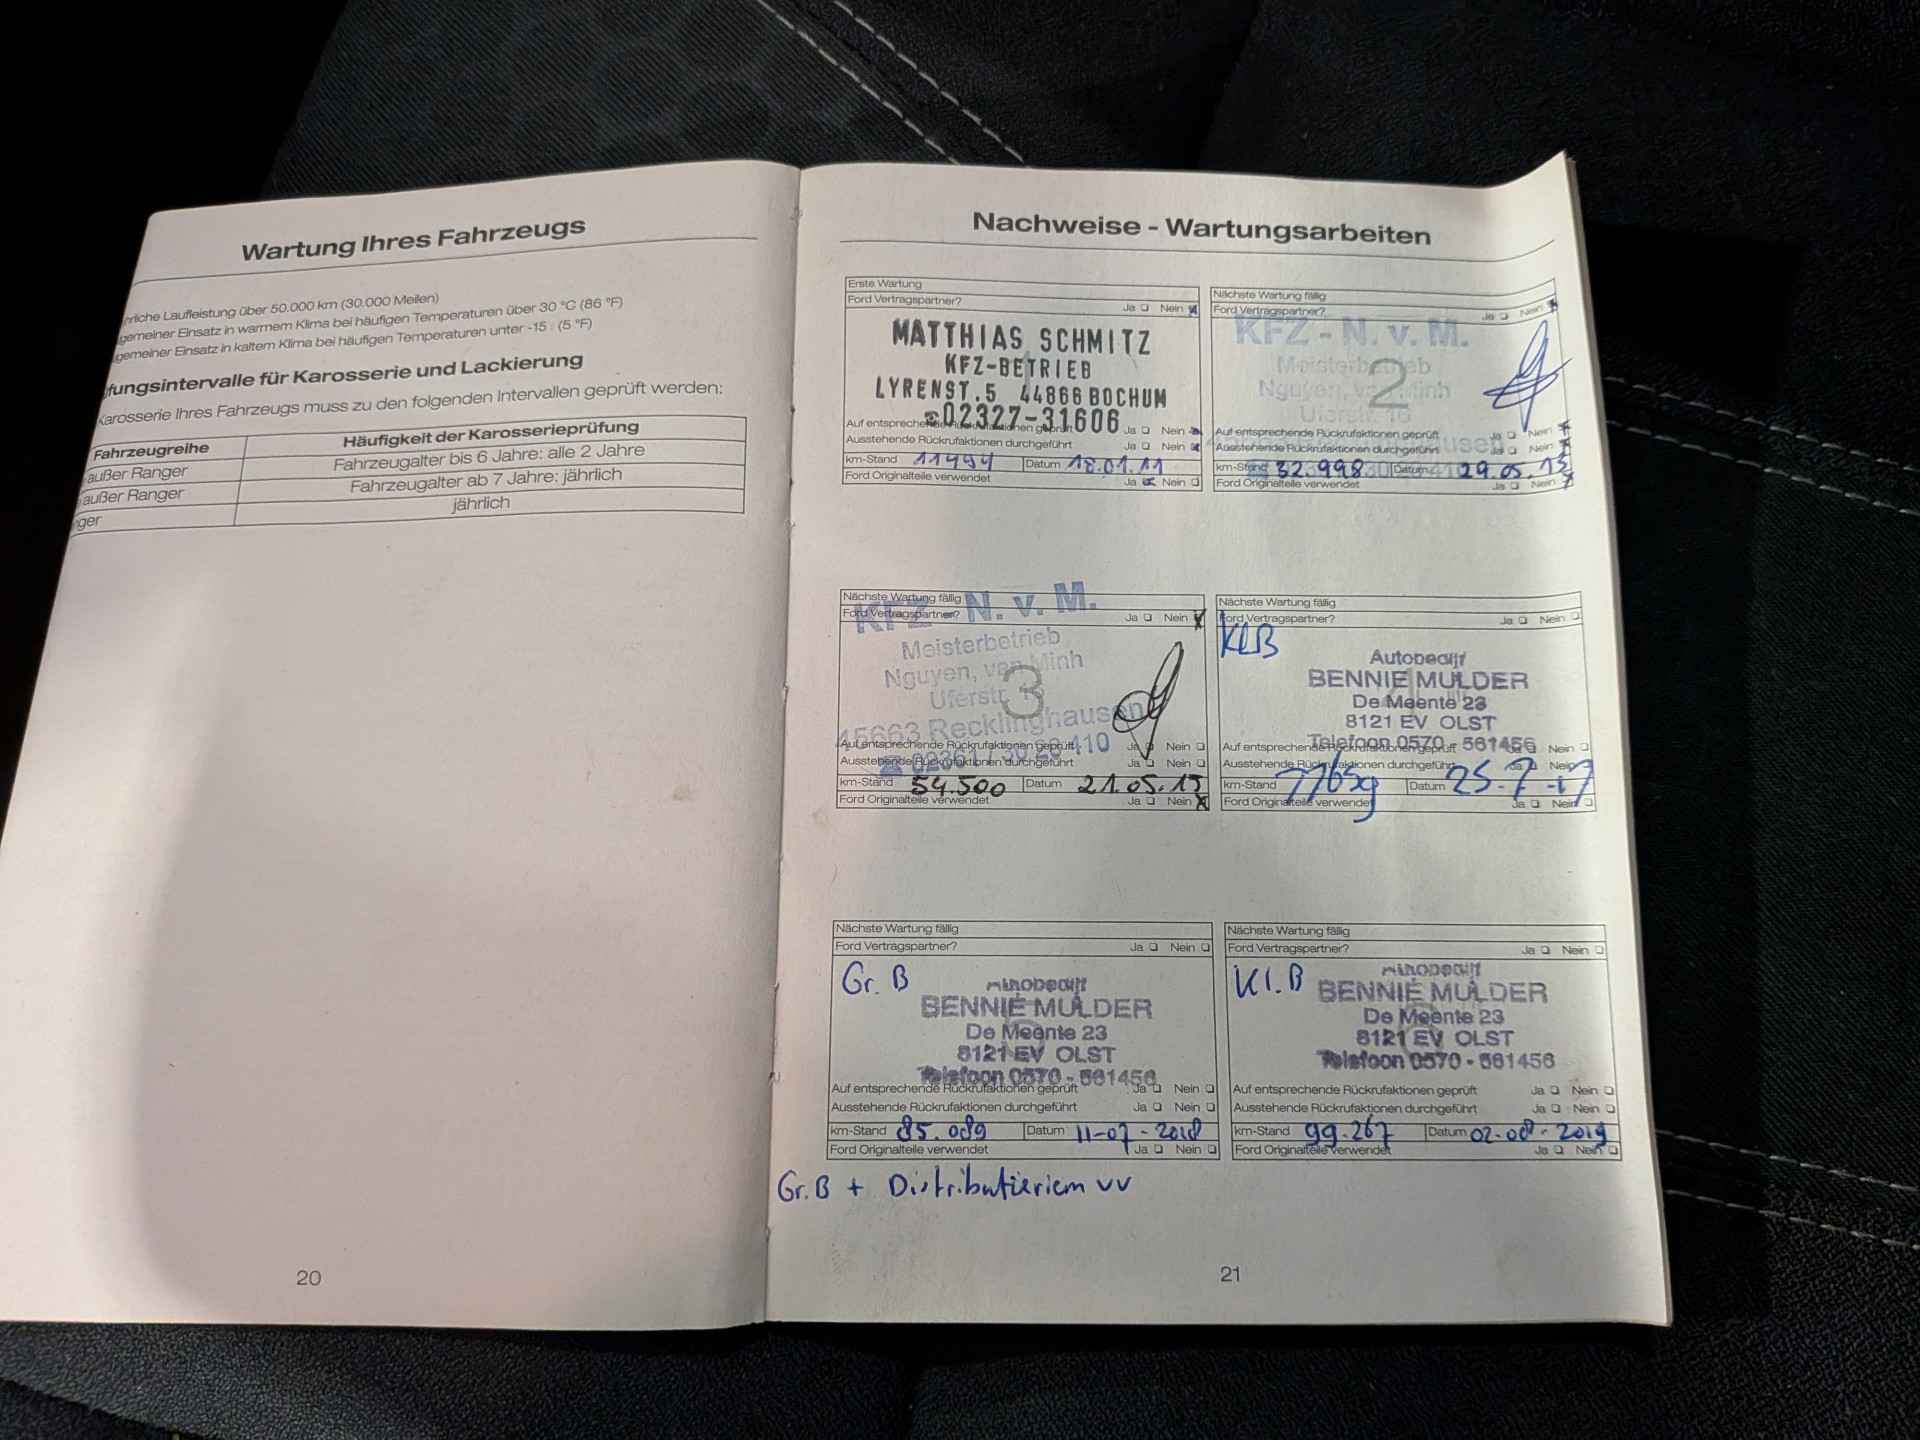 Wartung Ihres Fahrzeugs
rliche Laufleistung über 50.000 km (30.000 Meilen)
gemeiner Einsatz in warmem Klima bei häufigen Temperaturen über 30 °C (86 °F)
gemeiner Einsatz in kaltem Klima bei häufigen Temperaturen unter -15 (5 °F)
fungsintervalle für Karosserie und Lackierung
Karosserie Ihres Fahrzeugs muss zu den folgenden Intervallen geprüft werden:
Fahrzeugreihe Häufigkeit der Karosserieprüfung
außer Ranger Fahrzeugalter bis 6 Jahre: alle 2 Jahre
außer Ranger Fahrzeugalter ab 7 Jahre: jährlich
nger jährlich
20
Nachweise - Wartungsarbeiten
Erste Wartung
Ford Vertragspartner? Ja Nein
MATTHIAS SCHMITZ
KFZ-BETRIEB
LYRENST.5 44866 BOCHUM
☎02327-31606
Auf entsprechende Rückrufaktionen geprüft Ja Nein
Ausstehende Rückrufaktionen durchgeführt Ja Nein
km-Stand 11494 Datum 18.01.11
Ford Originalteile verwendet Ja Nein
Nächste Wartung fällig
Ford Vertragspartner? Ja Nein
KFZ - N. v. M.
Meisterbetrieb
2
Nguyen, van Minh
Uferstr. 16
Auf entsprechende Rückrufaktionen geprüft Ja Nein
Ausstehende Rückrufaktionen durchgeführt Ja Nein
km-Stand 32.998 Datum 29.05.13
Ford Originalteile verwendet Ja Nein
Nächste Wartung fällig
KFZ - N. v. M.
Ford Vertragspartner? Ja Nein
Meisterbetrieb
Nguyen, van Minh
3
Uferstr. 16
45663 Recklinghausen
Auf entsprechende Rückrufaktionen geprüft Ja Nein
Ausstehende Rückrufaktionen durchgeführt Ja Nein
km-Stand 54.500 Datum 21.05.15
Ford Originalteile verwendet Ja Nein
Nächste Wartung fällig
Ford Vertragspartner? Ja Nein
KLB
Autobedrijf
BENNIE MULDER
De Meente 23
8121 EV OLST
Telefoon 0570 - 561456
Auf entsprechende Rückrufaktionen geprüft Ja Nein
Ausstehende Rückrufaktionen durchgeführt Ja Nein
km-Stand 77659 Datum 25-7-17
Ford Originalteile verwendet Ja Nein
Nächste Wartung fällig
Ford Vertragspartner? Ja Nein
Gr. B
Autobedrijf
BENNIE MULDER
De Meente 23
8121 EV OLST
Telefoon 0570 - 561456
Auf entsprechende Rückrufaktionen geprüft Ja Nein
Ausstehende Rückrufaktionen durchgeführt Ja Nein
km-Stand 85.089 Datum 11-07-2018
Ford Originalteile verwendet Ja Nein
Gr. B + Distributieriem vv
Nächste Wartung fällig
Ford Vertragspartner? Ja Nein
Kl. B
Autobedrijf
BENNIE MULDER
De Meente 23
8121 EV OLST
Telefoon 0570 - 561456
Auf entsprechende Rückrufaktionen geprüft Ja Nein
Ausstehende Rückrufaktionen durchgeführt Ja Nein
km-Stand 99.267 Datum 02-08-2019
Ford Originalteile verwendet Ja Nein
21